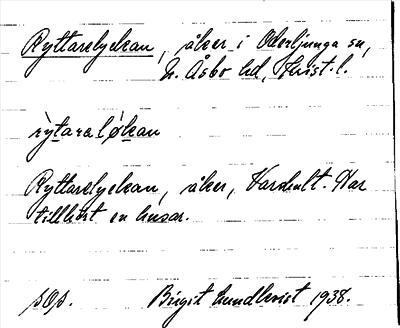 Ryttarelyckan, åker i Oderljunga sn,
N. Åsbo hd, Krist. l.
rỳtaraløkan
Ryttarelyckan, åker, Varshult. Har
tillhört en husar.
Birgit Lundkvist 1938.